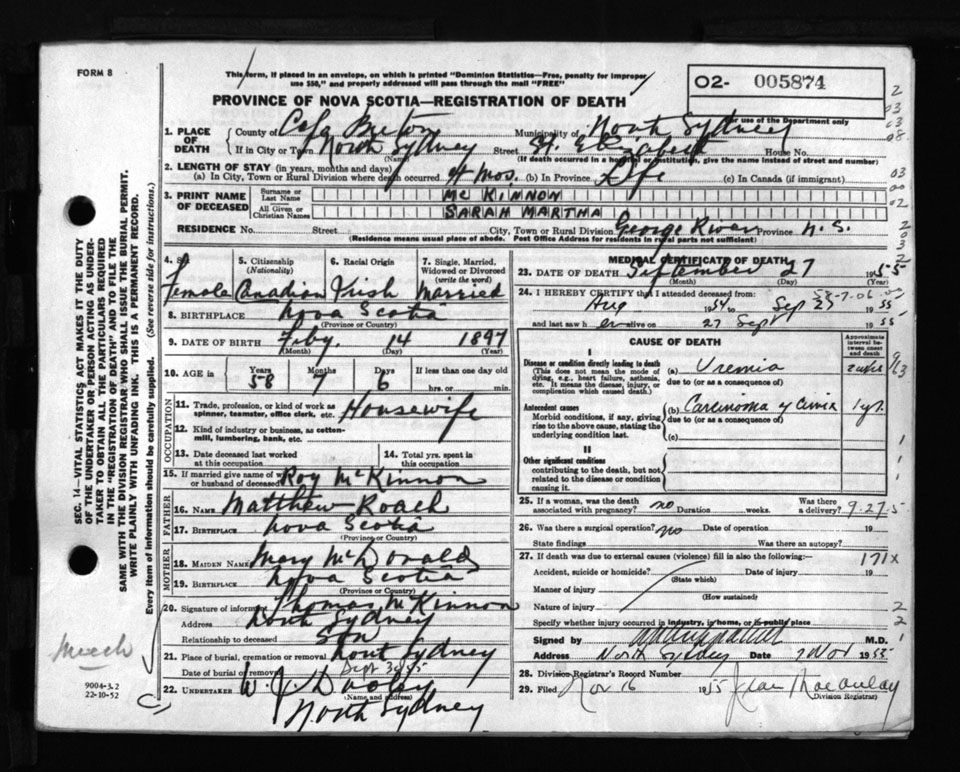 FORM 8
This form, if placed in an envelope, on which is printed "Dominion Statistics—Free, penalty for improper
use $50," and properly addressed will pass through the mail "FREE"
O2- 005874
For use of the Department only
PROVINCE OF NOVA SCOTIA—REGISTRATION OF DEATH
1. PLACE OF DEATH County of Cape Breton Municipality of North Sydney
If in City or Town North Sydney (Name) Street St. Elizabeth House No.
(If death occurred in a hospital or institution, give the name instead of street and number)
2. LENGTH OF STAY (in years, months and days)
(a) In City, Town or Rural Division where death occurred 4 Mos. (b) In Province Life (c) In Canada (if immigrant)
3. PRINT NAME OF DECEASED Surname or Last Name MC KINNON
All Given or Christian Names SARAH MARTHA
RESIDENCE No. Street City, Town or Rural Division George River Province N.S.
(Residence means usual place of abode. Post Office Address for residents in rural parts not sufficient)
4. Sex 5. Citizenship (Nationality) 6. Racial Origin 7. Single, Married, Widowed or Divorced (write the word)
Female Canadian Irish Married
8. BIRTHPLACE Nova Scotia
(Province or Country)
9. DATE OF BIRTH Feby. 14 1897
(Month) (Day) (Year)
10. AGE in Years Months Days If less than one day
58 7 6 hrs. or min.
OCCUPATION
11. Trade, profession, or kind of work as spinner, teamster, office clerk, etc. Housewife
12. Kind of industry or business, as cotton-mill, lumbering, bank, etc.
13. Date deceased last worked at this occupation 14. Total yrs. spent in this occupation
15. If married give name of wife or husband of deceased Roy McKinnon
FATHER
16. Name Matthew Roach
17. Birthplace Nova Scotia
(Province or Country)
MOTHER
18. Maiden Name Mary McDonald
19. Birthplace Nova Scotia
(Province or Country)
20. Signature of informant Thomas McKinnon
Address North Sydney
Relationship to deceased Son
21. Place of burial, cremation or removal North Sydney
Date of burial or removal Sept 30 55
22. UNDERTAKER W. J. Dooley
(Name and address)
North Sydney
MEDICAL CERTIFICATE OF DEATH
23. DATE OF DEATH September 27 1955
(Month) (Day)
58-7-06
24. I HEREBY CERTIFY that I attended deceased from
Aug 1954 to Sep 27 1955
and last saw her alive on 27 Sept 1955
CAUSE OF DEATH
Approximate interval between onset and death
I
Disease or condition directly leading to death
(This does not mean the mode of dying, e.g., heart failure, asthenia, etc. It means the disease, injury, or complication which caused death.)
(a) Uremia
due to (or as a consequence of)
Antecedent causes
Morbid conditions, if any, giving rise to the above cause, stating the underlying condition last.
(b) Carcinoma of Cervix 1 yr.
due to (or as a consequence of)
(c)
II
Other significant conditions
contributing to the death, but not related to the disease or condition causing it.
25. If a woman, was the death associated with pregnancy? no Duration weeks. Was there a delivery?
9-27-5
26. Was there a surgical operation? no Date of operation 19
State findings Was there an autopsy?
27. If death was due to external causes (violence) fill in also the following:— 171X
Accident, suicide or homicide? Date of injury 19
(State which)
Manner of injury
(How sustained)
Nature of injury
Specify whether injury occurred in industry, in home, or in public place
Signed by M.D.
Address North Sydney Date 7 Nov 1955
28. Division Registrar's Record Number
29. Filed Nov 16 1955 Jean Macaulay
Division Registrar
SEC. 14—VITAL STATISTICS ACT MAKES IT THE DUTY
OF THE UNDERTAKER OR PERSON ACTING AS UNDERTAKER
TO OBTAIN ALL THE PARTICULARS REQUIRED
IN THE "REGISTRATION OF DEATH" AND TO FILE THE
SAME WITH THE DIVISION REGISTRAR WHO SHALL ISSUE THE BURIAL PERMIT.
WRITE PLAINLY WITH UNFADING INK. THIS IS A PERMANENT RECORD.
Every item of information should be carefully supplied. (See reverse side for instructions.)
9004-3.2
22-10-52
2
03
03
08
03
00
02
2
1
1
2
2
1